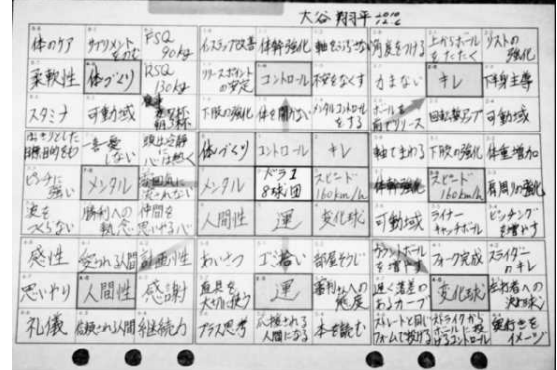 大谷 翔平
体のケア サプリメントをのむ FSQ 90kg インステップ改善 体幹強化 軸をぶらさない 角度をつける 上からボールをたたく リストの強化
柔軟性 体づくり RSQ 130kg リリースポイントの安定 コントロール 不安をなくす 力まない キレ 下半身主導
スタミナ 可動域 下肢の強化 体を開かない メンタルコントロールをする ボールを前でリリース 回転数アップ 可動域
はっきりとした目標、目的をもつ 一喜一憂しない 頭は冷静に心は熱く 体づくり コントロール キレ 軸でまわる 下肢の強化 体重増加
ピンチに強い メンタル 雰囲気に流されない メンタル ドラ1 8球団 スピード160km/h 体幹強化 スピード160km/h 肩周りの強化
波をつくらない 勝利への執念 仲間を思いやる心 人間性 運 変化球 可動域 ライナーキャッチボール ピッチングを増やす
感性 愛される人間 計画性 あいさつ ゴミ拾い 部屋そうじ カウントボールを増やす フォーク完成 スライダーのキレ
思いやり 人間性 感謝 道具を大切に使う 運 審判さんへの態度 遅く落差のあるカーブ 変化球 左打者への決め球
礼儀 信頼される人間 継続力 プラス思考 応援される人間になる 本を読む ストレートと同じフォームで投げる ストライクからボールに投げるコントロール 奥行きをイメージ